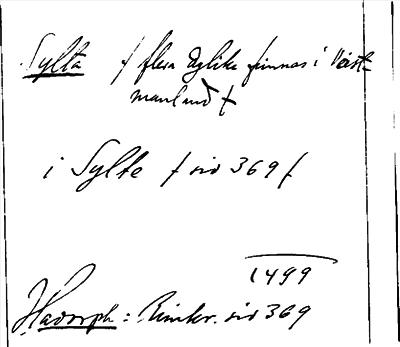 Sylta / flera dylika finnas i Väst-
manland /
i Sylte / sid 369 /
1499
Hadorph: Rimkr. sid 369